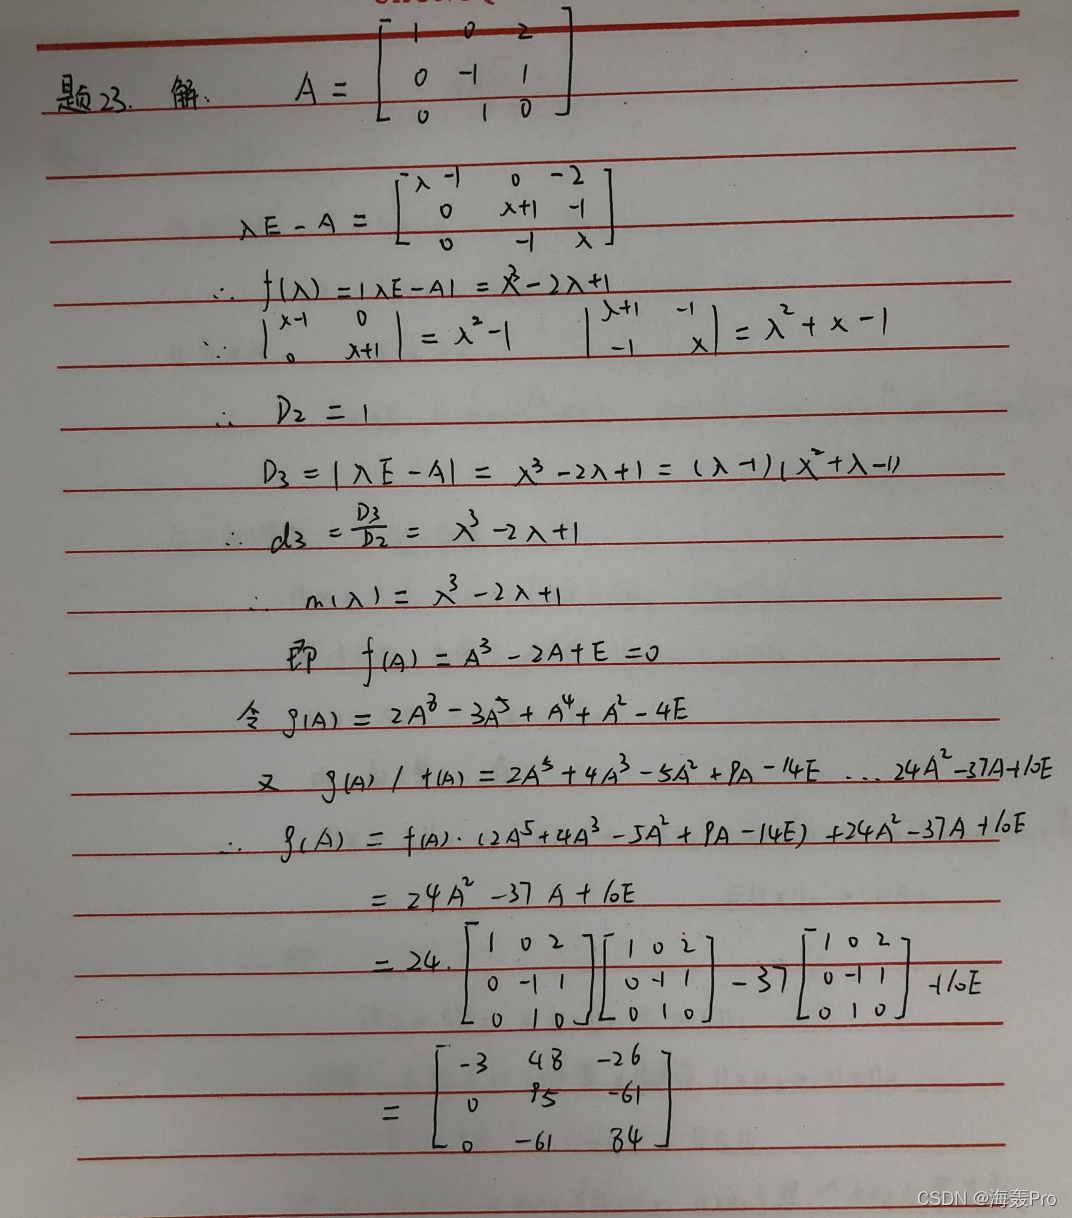 题23. 解: A = [1 0 2
0 -1 1
0 1 0]
λE - A = [λ-1 0 -2
0 λ+1 -1
0 -1 λ]
∴ f(λ) = |λE-A| = λ³-2λ+1
∵ |λ-1 0
0 λ+1| = λ²-1 |λ+1 -1
-1 λ| = λ²+λ-1
∴ D2 = 1
D3 = |λE-A| = λ³-2λ+1 = (λ-1)(λ²+λ-1)
∴ d3 = D3/D2 = λ³-2λ+1
∴ m(λ) = λ³-2λ+1
即 f(A) = A³-2A+E=0
令 g(A) = 2A⁸-3A⁵+A⁴+A²-4E
又 g(A) / f(A) = 2A⁵+4A³-5A²+9A-14E ... 24A²-37A+10E
∴ g(A) = f(A)·(2A⁵+4A³-5A²+9A-14E)+24A²-37A+10E
= 24A²-37A+10E
= 24·[1 0 2
0 -1 1
0 1 0][1 0 2
0 -1 1
0 1 0] - 37[1 0 2
0 -1 1
0 1 0] +10E
= [-3 48 -26
0 95 -61
0 -61 34]
CSDN @海轰Pro